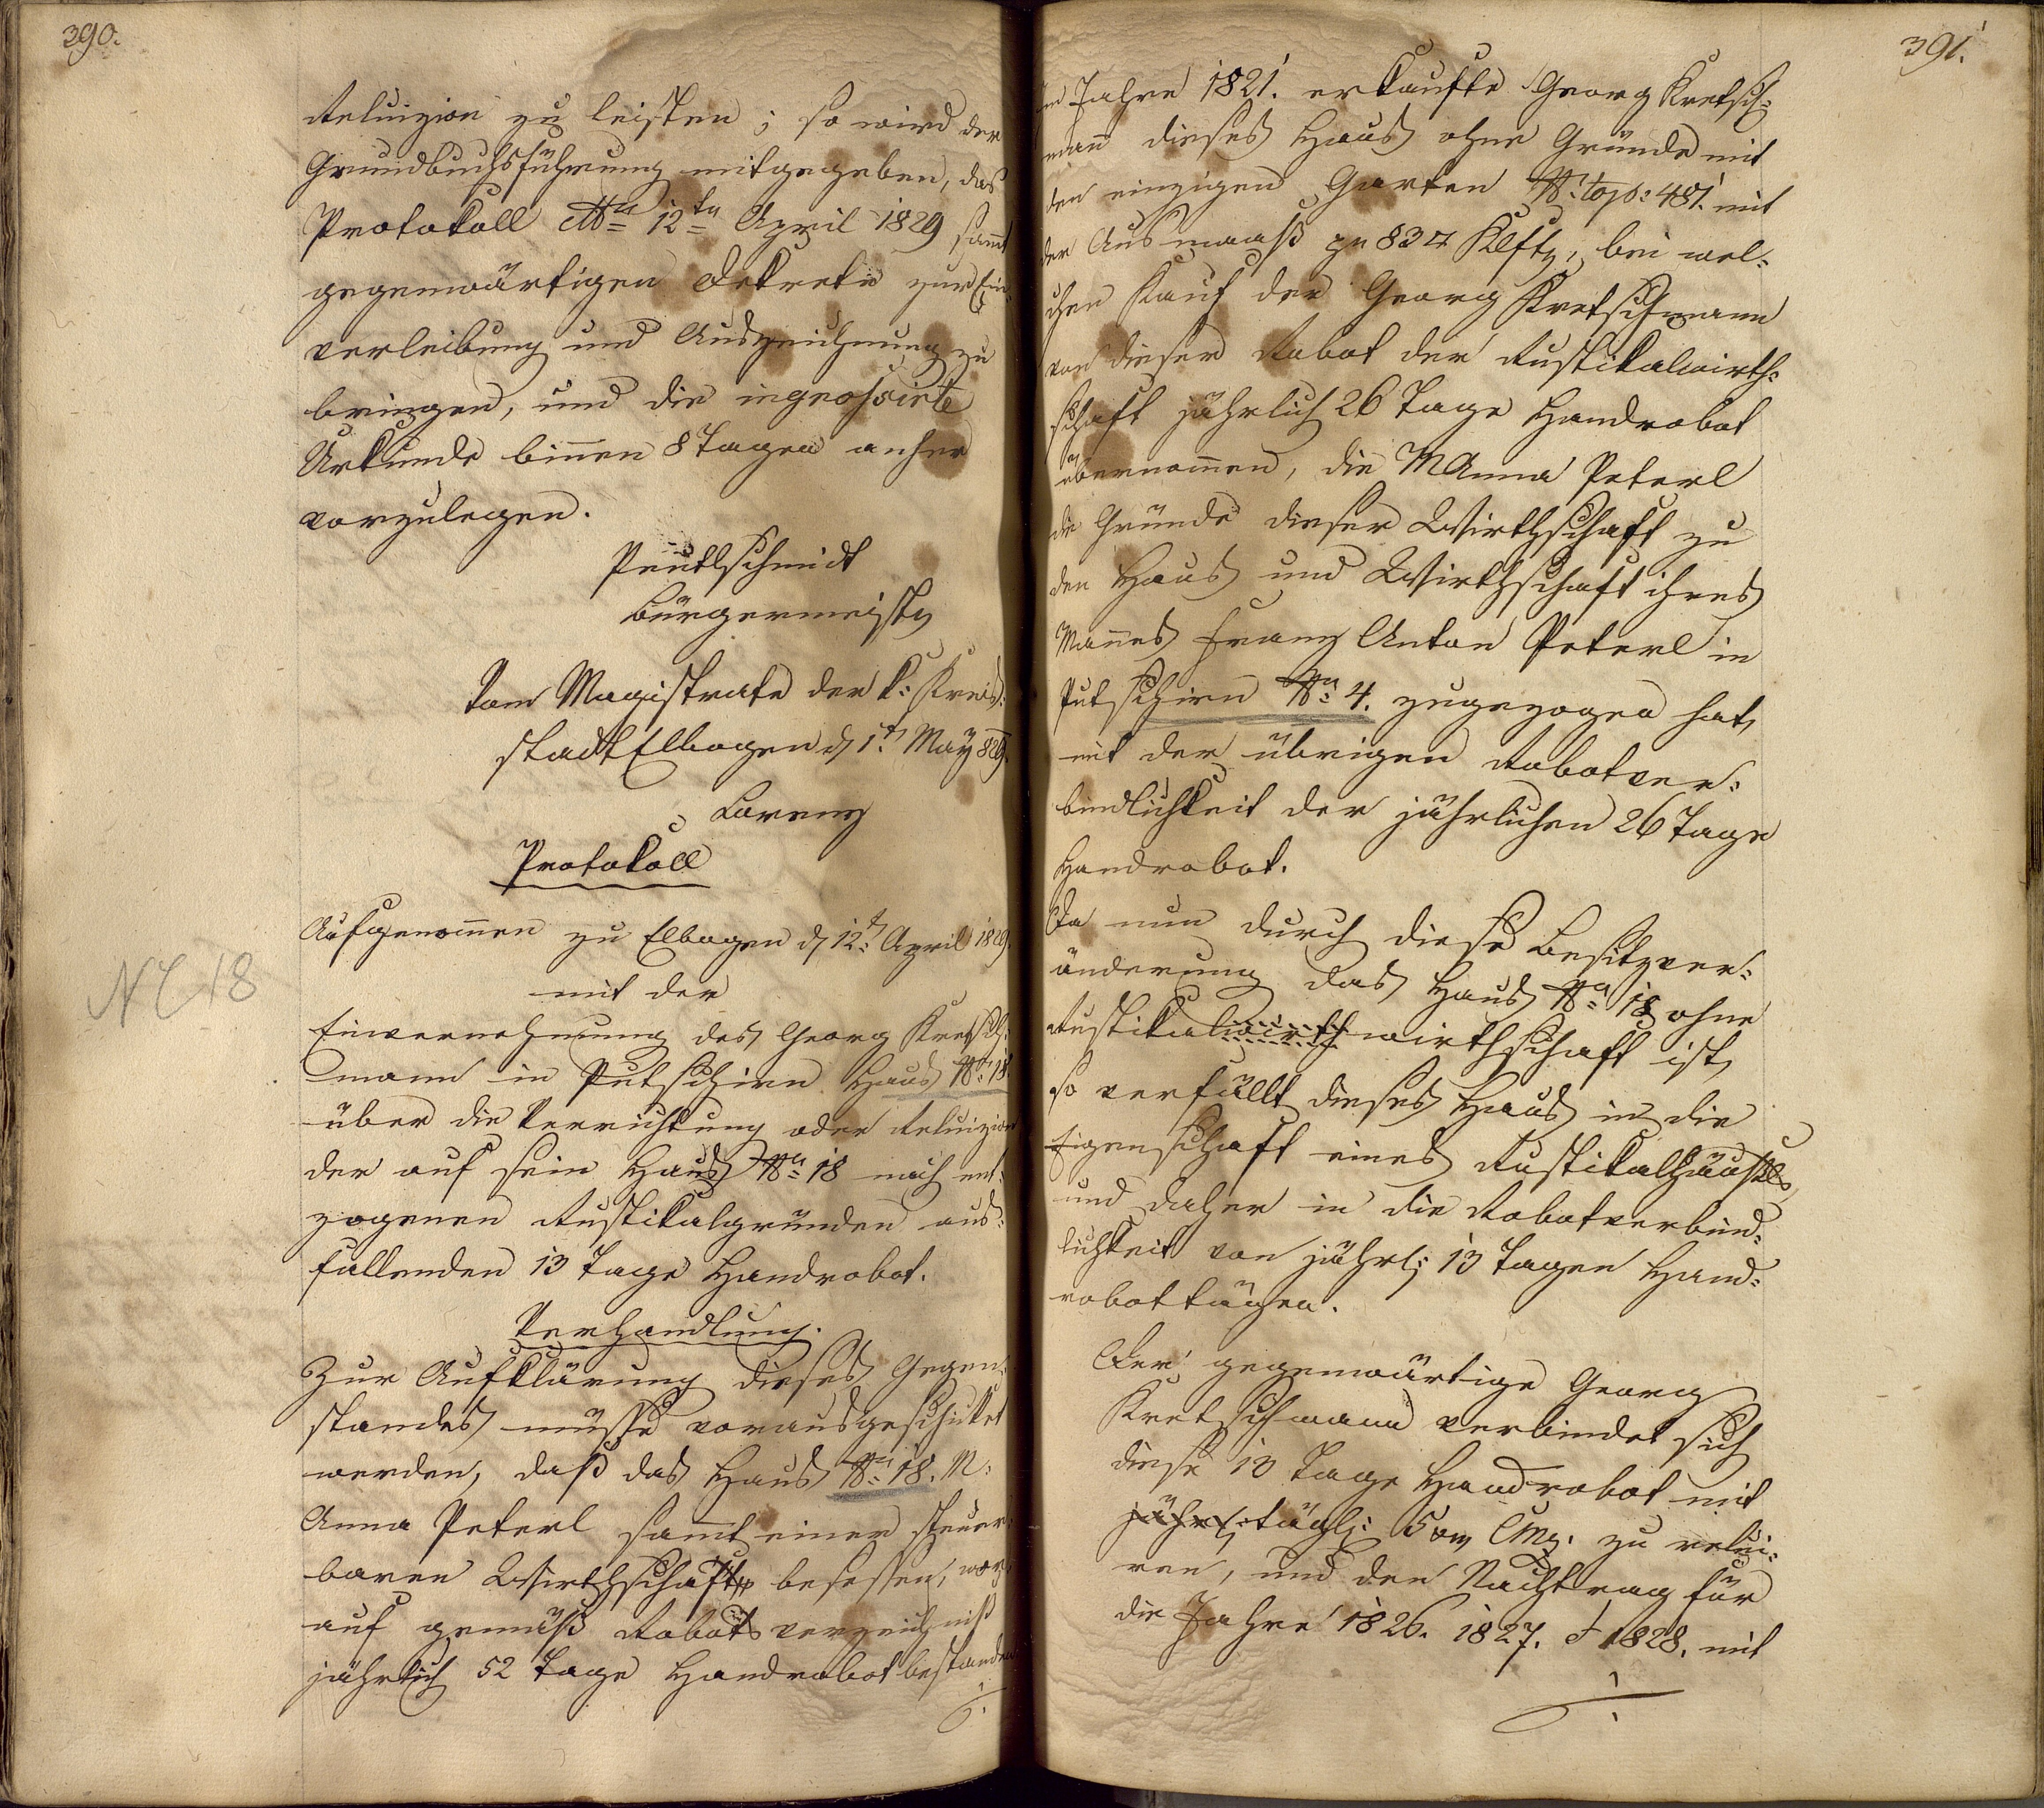 390.
Reluizion zu leisten; so wird der
Grundbuchsführung mitgegeben, das
Protokoll dto 12ten April 1829 sammt
gegenwärtigen Dekrete zur Ein-
verleibung und Auszeichnung zu
bringen, und die ingrossirte
Urkunde binnen 8 Tagen anher
vorzulegen.
Bürgermeister
Vom Magistrate der k: Kreis-
stadt Elbogen d 1t May 829.
Lorenz
Protokoll
Aufgenommen zu Elbogen d 12t April 1829.
mit der
NC 18
Einvernehmung des Georg Kretsch-
mann in Putschirn Haus No 18.
über die Verrichtung oder Reluizion
der auf sein Haus No 18 nach ent-
zogenen Rustikalgründen aus-
fallenden 13 Tage Handrobot.
Verhandlung.
Zur Aufklärung dieses Gegen-
standes müsse vorausgeschicket
werden, daß das Haus No 18. M:
Anna Peterl sammt einer steuer-
baren Wirthschaft besessen, wor-
auf gemäß Robotsverzeichniß
jährlich 52 Tage Handrobot bestanden
./.
391.
Im Jahre 1821. erkaufte Georg Kretsch-
mann dieses Haus ohne Gründe mit
den einzigen Garten No top: 481. mit
der Ausmaaß pr 83 □ Klftr, bei wel-
chen Kauf der Georg Kretschmann
von dieser Robot der Rustikalwirth-
schaft jährlich 26 Tage Handrobot
übernommen, die M Anna Peterl
die Gründe dieser Wirthschaft zu
den Haus und Wirthschaft ihres
Mannes Franz Anton Peterl in
Putschirn No 4. zugezogen hat,
mit der übrigen Robotver-
bindlichkeit der jährlichen 26 Tage
Handrobot.
Da nun durch diese Besitzver-
änderung das Haus No 18 ohne
Rustikalwirthwirthschaft ist,
so verfällt dieses Haus in die
Eigenschaft eines Rustikalhäusls
und daher in die Robotverbind-
lichkeit von jährl: 13 Tagen Hand-
robottägen.
Der gegenwärtige Georg
Kretschmann verbindet sich
diese 13 Tage Handrobot mit
jährl: tägl: 5 xr CMz. zu relui-
ren, und den Nachtrag für
die Jahre 1826. 1827. et 1828. mit
./.